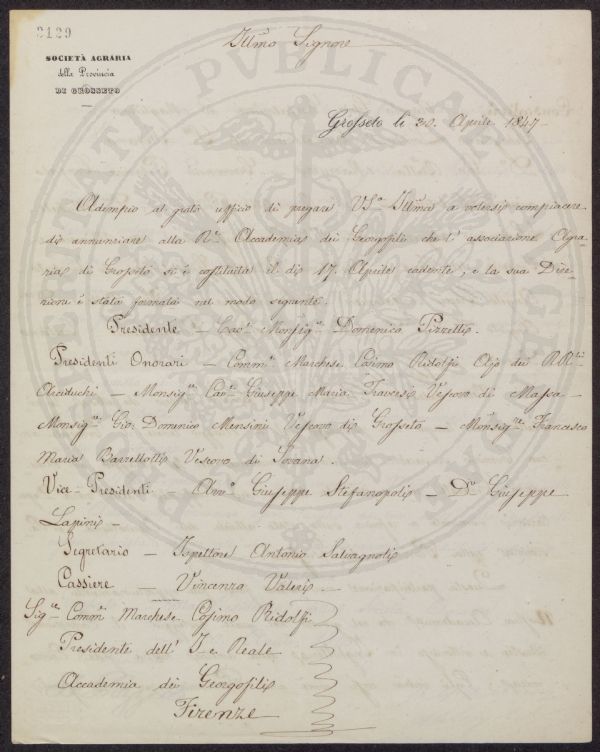 2129
Illmo Signore
SOCIETÀ AGRARIA
della Provincia
DI GROSSETO
Grosseto li 30. Aprile 1847.
Adempio al grato ufficio di pregare VS.a Illma a volersi compiacere
di annunziare alla R.le Accademia dei Georgofili che l'associazione Agra-
ria di Grosseto si è costituita il dì 17. Aprile cadente, e la sua Dire-
zione è stata formata nel modo seguente.
Presidente — Cav.e Monsig.re Domenico Pizzetti.
Presidenti Onorari — Comm.e Marchese Cosimo Ridolfi Ajo dei RR.li
Arciduchi — Monsig.re Cav.e Giuseppe Maria Traversi Vescovo di Massa —
Monsig.re Gio: Domenico Mensini Vescovo di Grosseto — Monsig.re Francesco
Maria Barzellotti Vescovo di Sovana.
Vice-Presidenti — Giuseppe Stefanopoli — D.r Giuseppe
Lapini —
Segretario — Ispettore Antonio Salvagnoli
Cassiere — Vincenzo Valeri —
Sig.re Comm.e Marchese Cosimo Ridolfi
Presidente dell' I. e Reale
Accademia dei Georgofili
Firenze